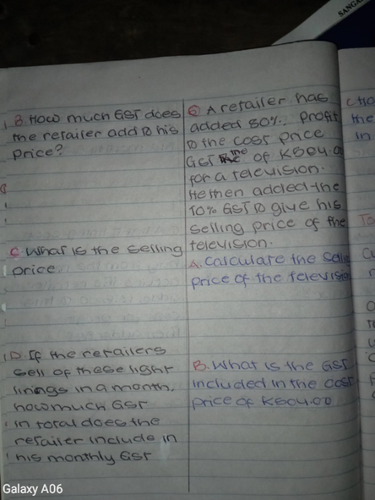 B. How much GST does
the retailer add to his
Price?
C. What is the selling
price
D. If the retailers
sell of these light
in a month,
how much GST
in total does the
retailer include in
his monthly GST
6. A retailer has
added 80% profit
to the cost price
GST of K504.00
for a television.
He then added the
10% GST to give his
selling price of the
television.
A. Calculate the
price of the
B. What is the GST
included in the cost
price of K504.00
the
in
SANGE
Galaxy A06